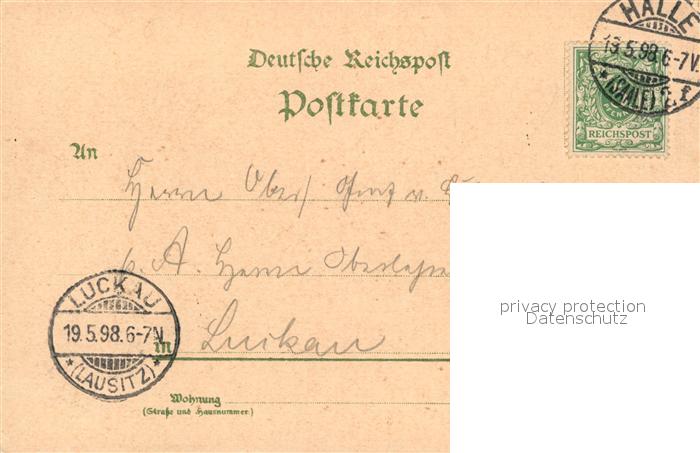 HALLE
19.5.98.6-7V.
*(SAALE) 2. f
Deutsche Reichspost
Postkarte
REICHSPOST
An
Herrn
p. A. Herrn
Luckau
LUCKAU
19.5.98.6-7N
*(LAUSITZ)*
in
Wohnung
(Straße und Hausnummer)
privacy protection
Datenschutz